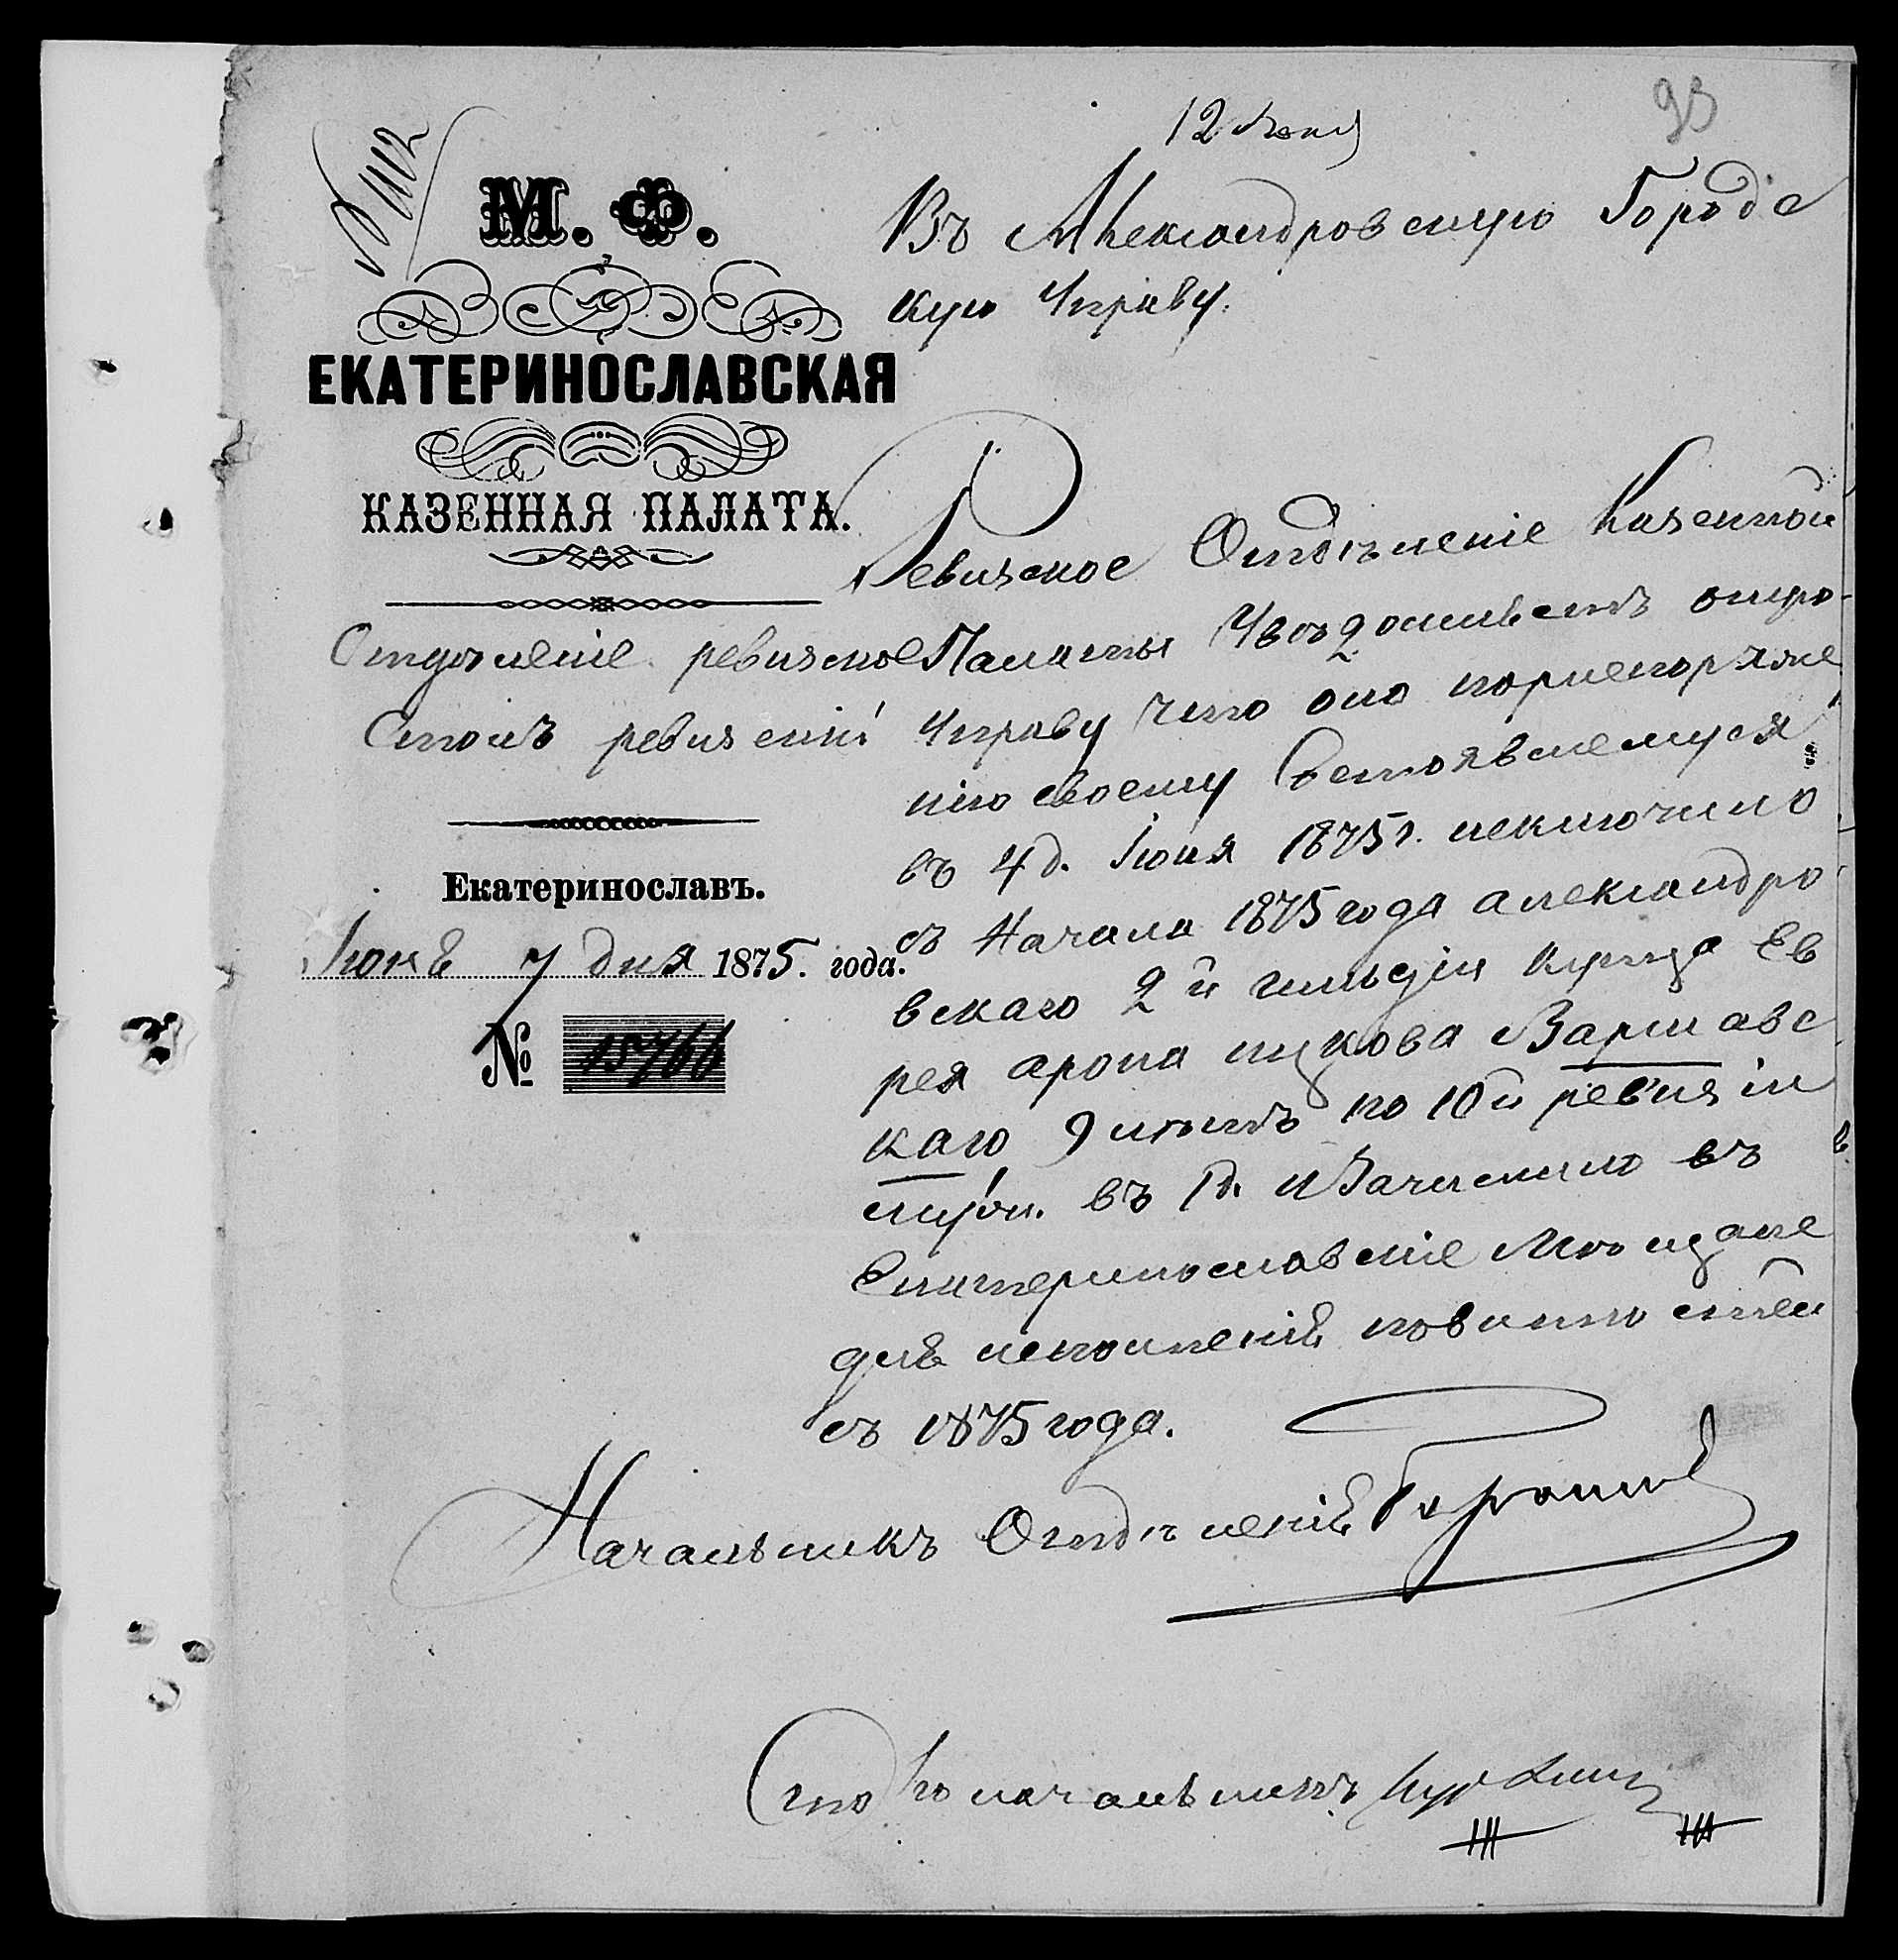 93
12 Июня
№ 1112
М. Ф.
ЕКАТЕРИНОСЛАВСКАЯ
КАЗЕННАЯ ПАЛАТА.
Отдѣленіе ревизское
Столъ ревизскій
Екатеринославъ.
Июнѣ 7 дня 1875. года.
№ 15766
Въ Александровскую Городс
кую Управу.
Ревизское Отдѣленіе Казенной
Палаты Увѣдомляетъ онуро
Управу что оно по распоряже
нію своему Состоявшемуся
въ 4 д. Іюня 1875 г. исключило
съ Начала 1875 года александро
вскаго 2й гильдіи купца Ев
рея арона ицкова Варшавс
каго 9 лѣтъ по 10й ревизіи
въ 1 д. и Зачислило въ
Екатеринославскіе Мѣщане
для исполненія повинностей
съ 1875 года.
Начальникъ Отдѣленія
Столоначальникъ